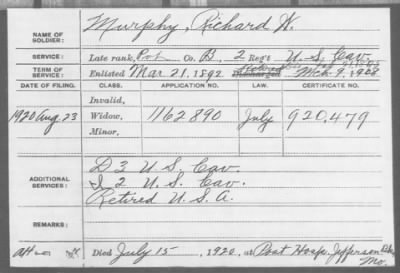 NAME OF SOLDIER: Murphy, Richard W.
SERVICE: Late rank, Pvt Co. B, 2 Reg't U.S. Cav.
TERM OF SERVICE: Enlisted Mar 21, 1892 Retired Discharged Mch. 9, 1908
DATE OF FILING. CLASS. APPLICATION NO. LAW. CERTIFICATE NO.
Invalid,
1920 Aug. 23 Widow, 1162890 July 920,479
Minor,
ADDITIONAL SERVICES: D 3 U.S. Cav.
I 2 U.S. Cav.
Retired U.S.A.
REMARKS:
Died July 15, 1920, at Post Hosp. Jefferson Bks
Mo.